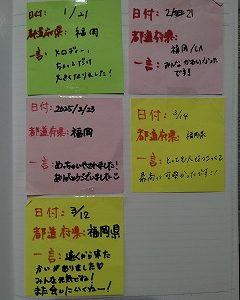 日付: 1/21
都道府県: 福岡
一言: メロディー、
ちょっとだけ
大きくなりました!
日付: 2/21
都道府県:
福岡/LA
一言: みんなかわいかった
です!
日付: 2025/2/23
都道府県: 福岡
一言: めっちゃいやされました!
ありがとうございました
日付: 3/14
都道府県: 福岡県
一言: とっても人なつっこくて
最高に可愛かったです!!
日付: 3/12
都道府県: 福岡県
一言: 遠くから来た
かいがありました
みんな元気でね!
また会いにいくねー!